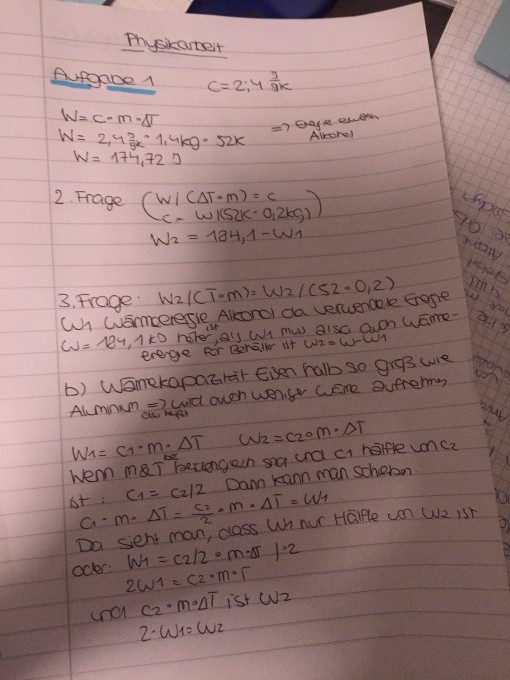 Physikarbeit
Aufgabe 1 c=2,4 J/gK
W=c·m·ΔT
W= 2,4 J/gK · 1,4kg · 52K => Energie Alkohol
W= 174,72 J
2. Frage (W/(ΔT·m)=c
c= W/(52K·0,2kg))
W2 = 184,1-W1
3. Frage: W2/(T·m)=W2/(52·0,2)
W1 Wärmeenergie Alkohol da verwendete Energie
W=184,1kJ höher ist, als W1 muss also auch Wärme-
energie für Behälter ist W2=W-W1
b) Wärmekapazität Eisen halb so groß wie
Aluminium => das heißt wird auch weniger Wärme aufnehmen
W1= c1·m·ΔT W2=c2·m·ΔT
Wenn m&T bei gleich sind und c1 hälfte von c2
ist: c1=c2/2 Dann kann man schreiben
c1·m·ΔT=c2/2·m·ΔT=W1
Da sieht man, dass W1 nur Hälfte von W2 ist
oder: W1=c2/2·m·ΔT |·2
2W1=c2·m·T
und c2·m·ΔT ist W2
2·W1=W2